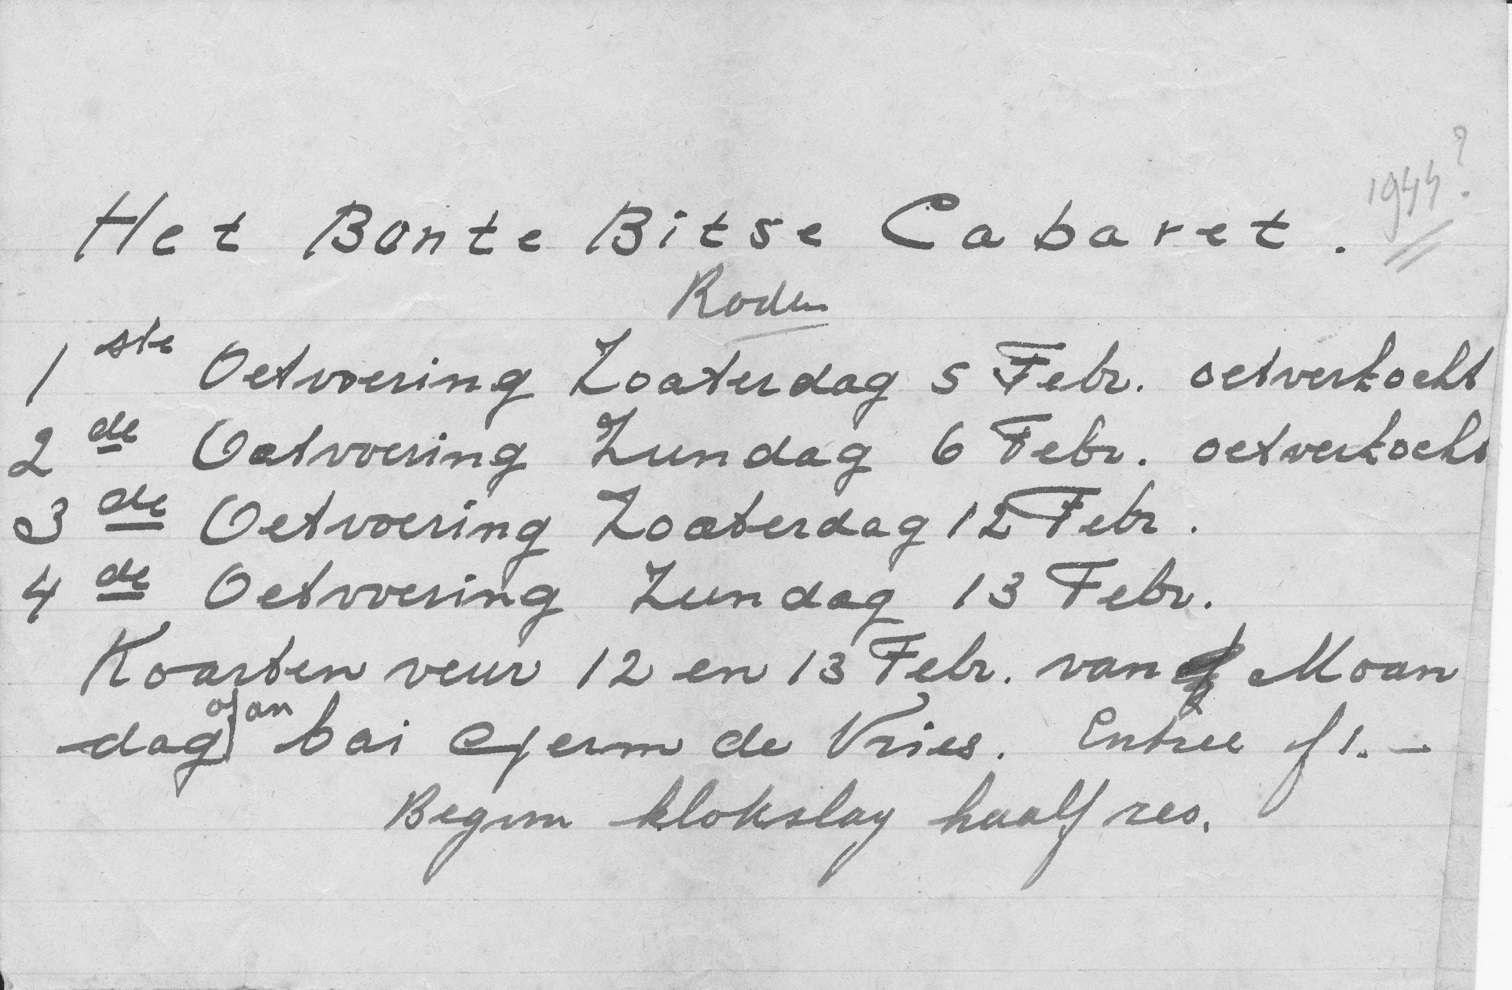 1944?
Het Bonte Bitse Cabaret.
Roden
1ste Oetvoering Zoaterdag 5 Febr. oetverkocht
2de Oetvoering Zundag 6 Febr. oetverkocht
3de Oetvoering Zoaterdag 12 Febr.
4de Oetvoering Zundag 13 Febr.
Koarten veur 12 en 13 Febr. van Moan
dag of an bai Gjerm de Vries. Entree f 1.–
Begin klokslag haalf zes.